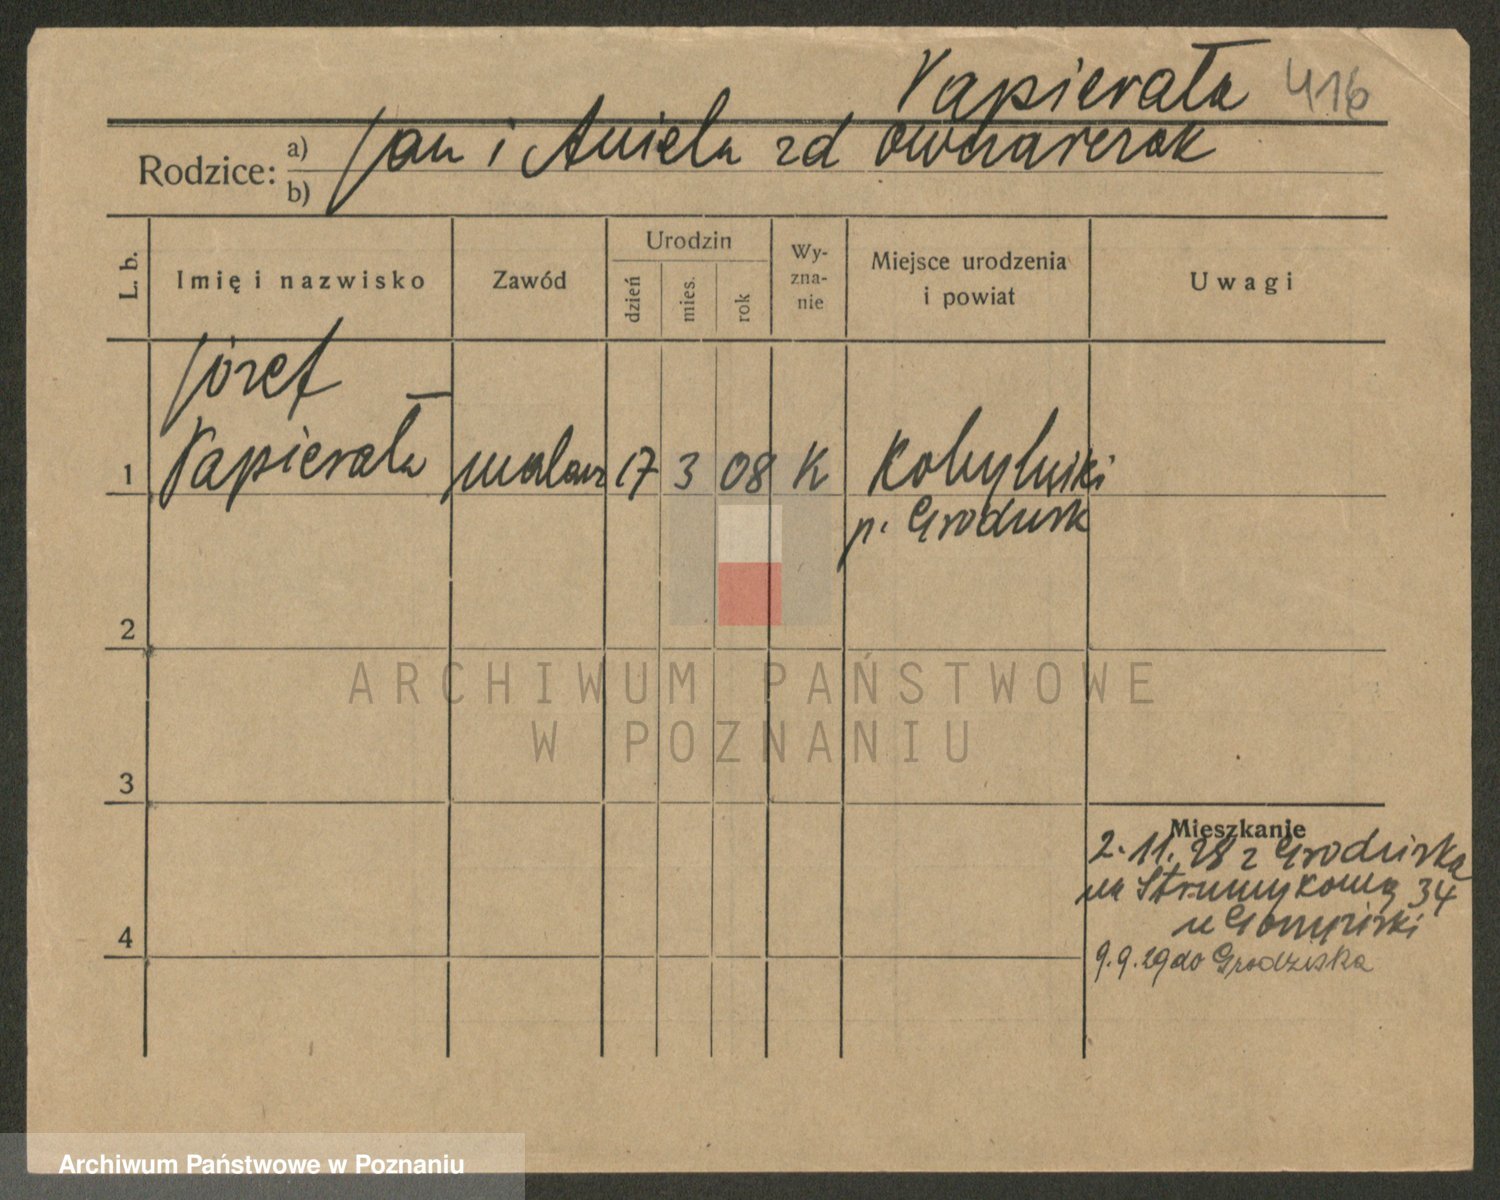 Papierała 416
Rodzice: a) Jan i Aniela zd Owczarczak
b)
L. b.
Imię i nazwisko
Zawód
Urodzin
dzień
mies.
rok
Wy-
zna-
nie
Miejsce urodzenia
i powiat
Uwagi
Józef
1 Papierała malarz 17 3 08 K Kobylniki
p. Grodzisk
2
3
4
Mieszkanie
2.11.28 z Grodziska
na Strumykową 34
u
9.9.29 do Grodziska
ARCHIWUM PAŃSTWOWE
W POZNANIU
Archiwum Państwowe w Poznaniu